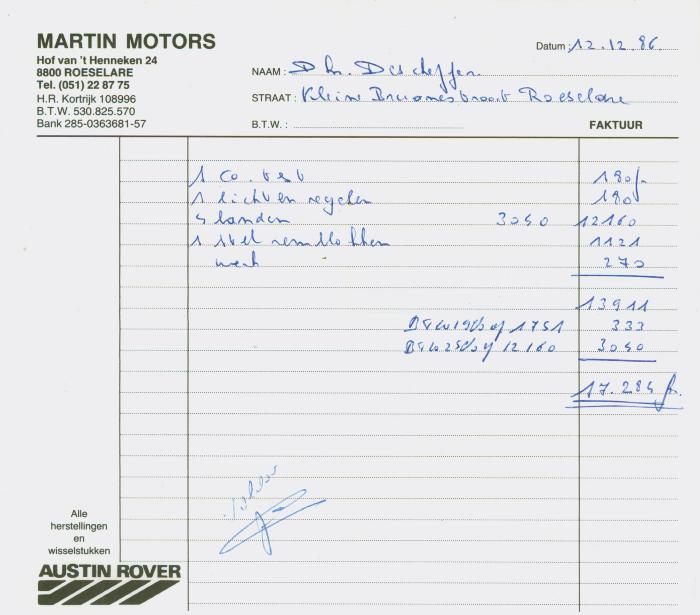 MARTIN MOTORS
Hof van 't Henneken 24
8800 ROESELARE
Tel. (051) 22 87 75
H.R. Kortrijk 108996
B.T.W. 530.825.570
Bank 285-0363681-57
Datum : 12.12.86.
NAAM : Dhr. Descheffer
STRAAT : Kleine Bruanestraat Roeselare
B.T.W. :
FAKTUUR
1 Co. test 180 fr
1 lichten regelen 180
4 banden 3040 12160
1 stel remblokken 1121
werk 270
13911
Btw 19% op 1751 333
Btw 25% op 12160 3040
17.284 fr.
Voldaan
Alle
herstellingen
en
wisselstukken
AUSTIN ROVER